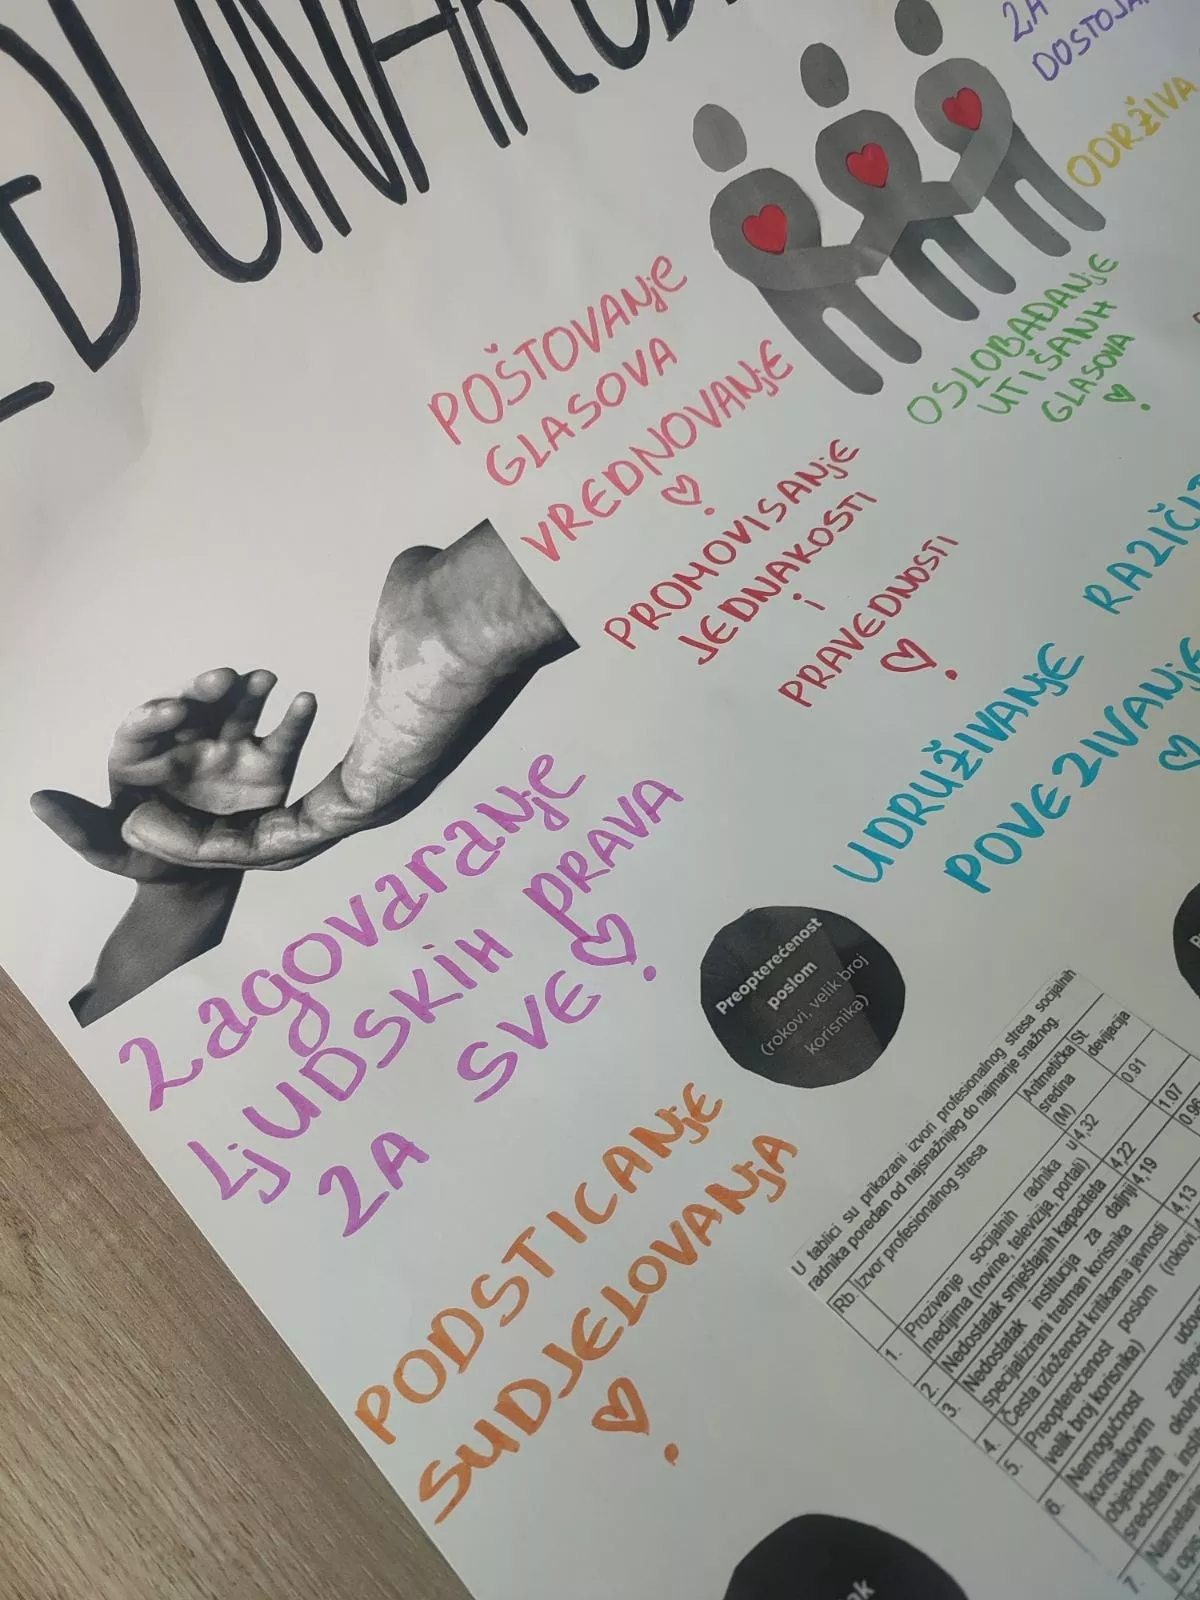 ZA
ODRŽIVA
POŠTOVANjE
GLASOVA
VREDNOVANjE
OSLOBAĐANjE
UTIŠANH
GLASOVA
PROMOVISANjE
JEDNAKOSTI
i
PRAVEDNOSTI
UDRUŽIVANjE
POVEZIVANjE
Zagovaranje
LjUDSKIH PRAVA
ZA SVE
PODSTICANjE
SUDJELOVANjA
Preopterećenost
poslom
(rokovi, velik broj
korisnika)
U tablici su prikazani izvori profesionalnog stresa socijalnih
radnika poredan od najsnažnijeg do najmanje snažnog.
Rb Izvor profesionalnog stresa Aritmetička sredina (M) St. devijacija
1. Prozivanje socijalnih radnika u
medijima (novine, televizija, portali) 4,32 0.91
2. Nedostatak smještajnih kapaciteta 4,22 1.07
3. Nedostatak institucija za daljnji
specijalizirani tretman korisnika 4,19
4. Česta izloženost kritikama javnosti 4,13
5. Preopterećenost poslom (rokovi,
velik broj korisnika)
6. Nemogućnost
korisnikovim
objektivnih
sredstava,
7.